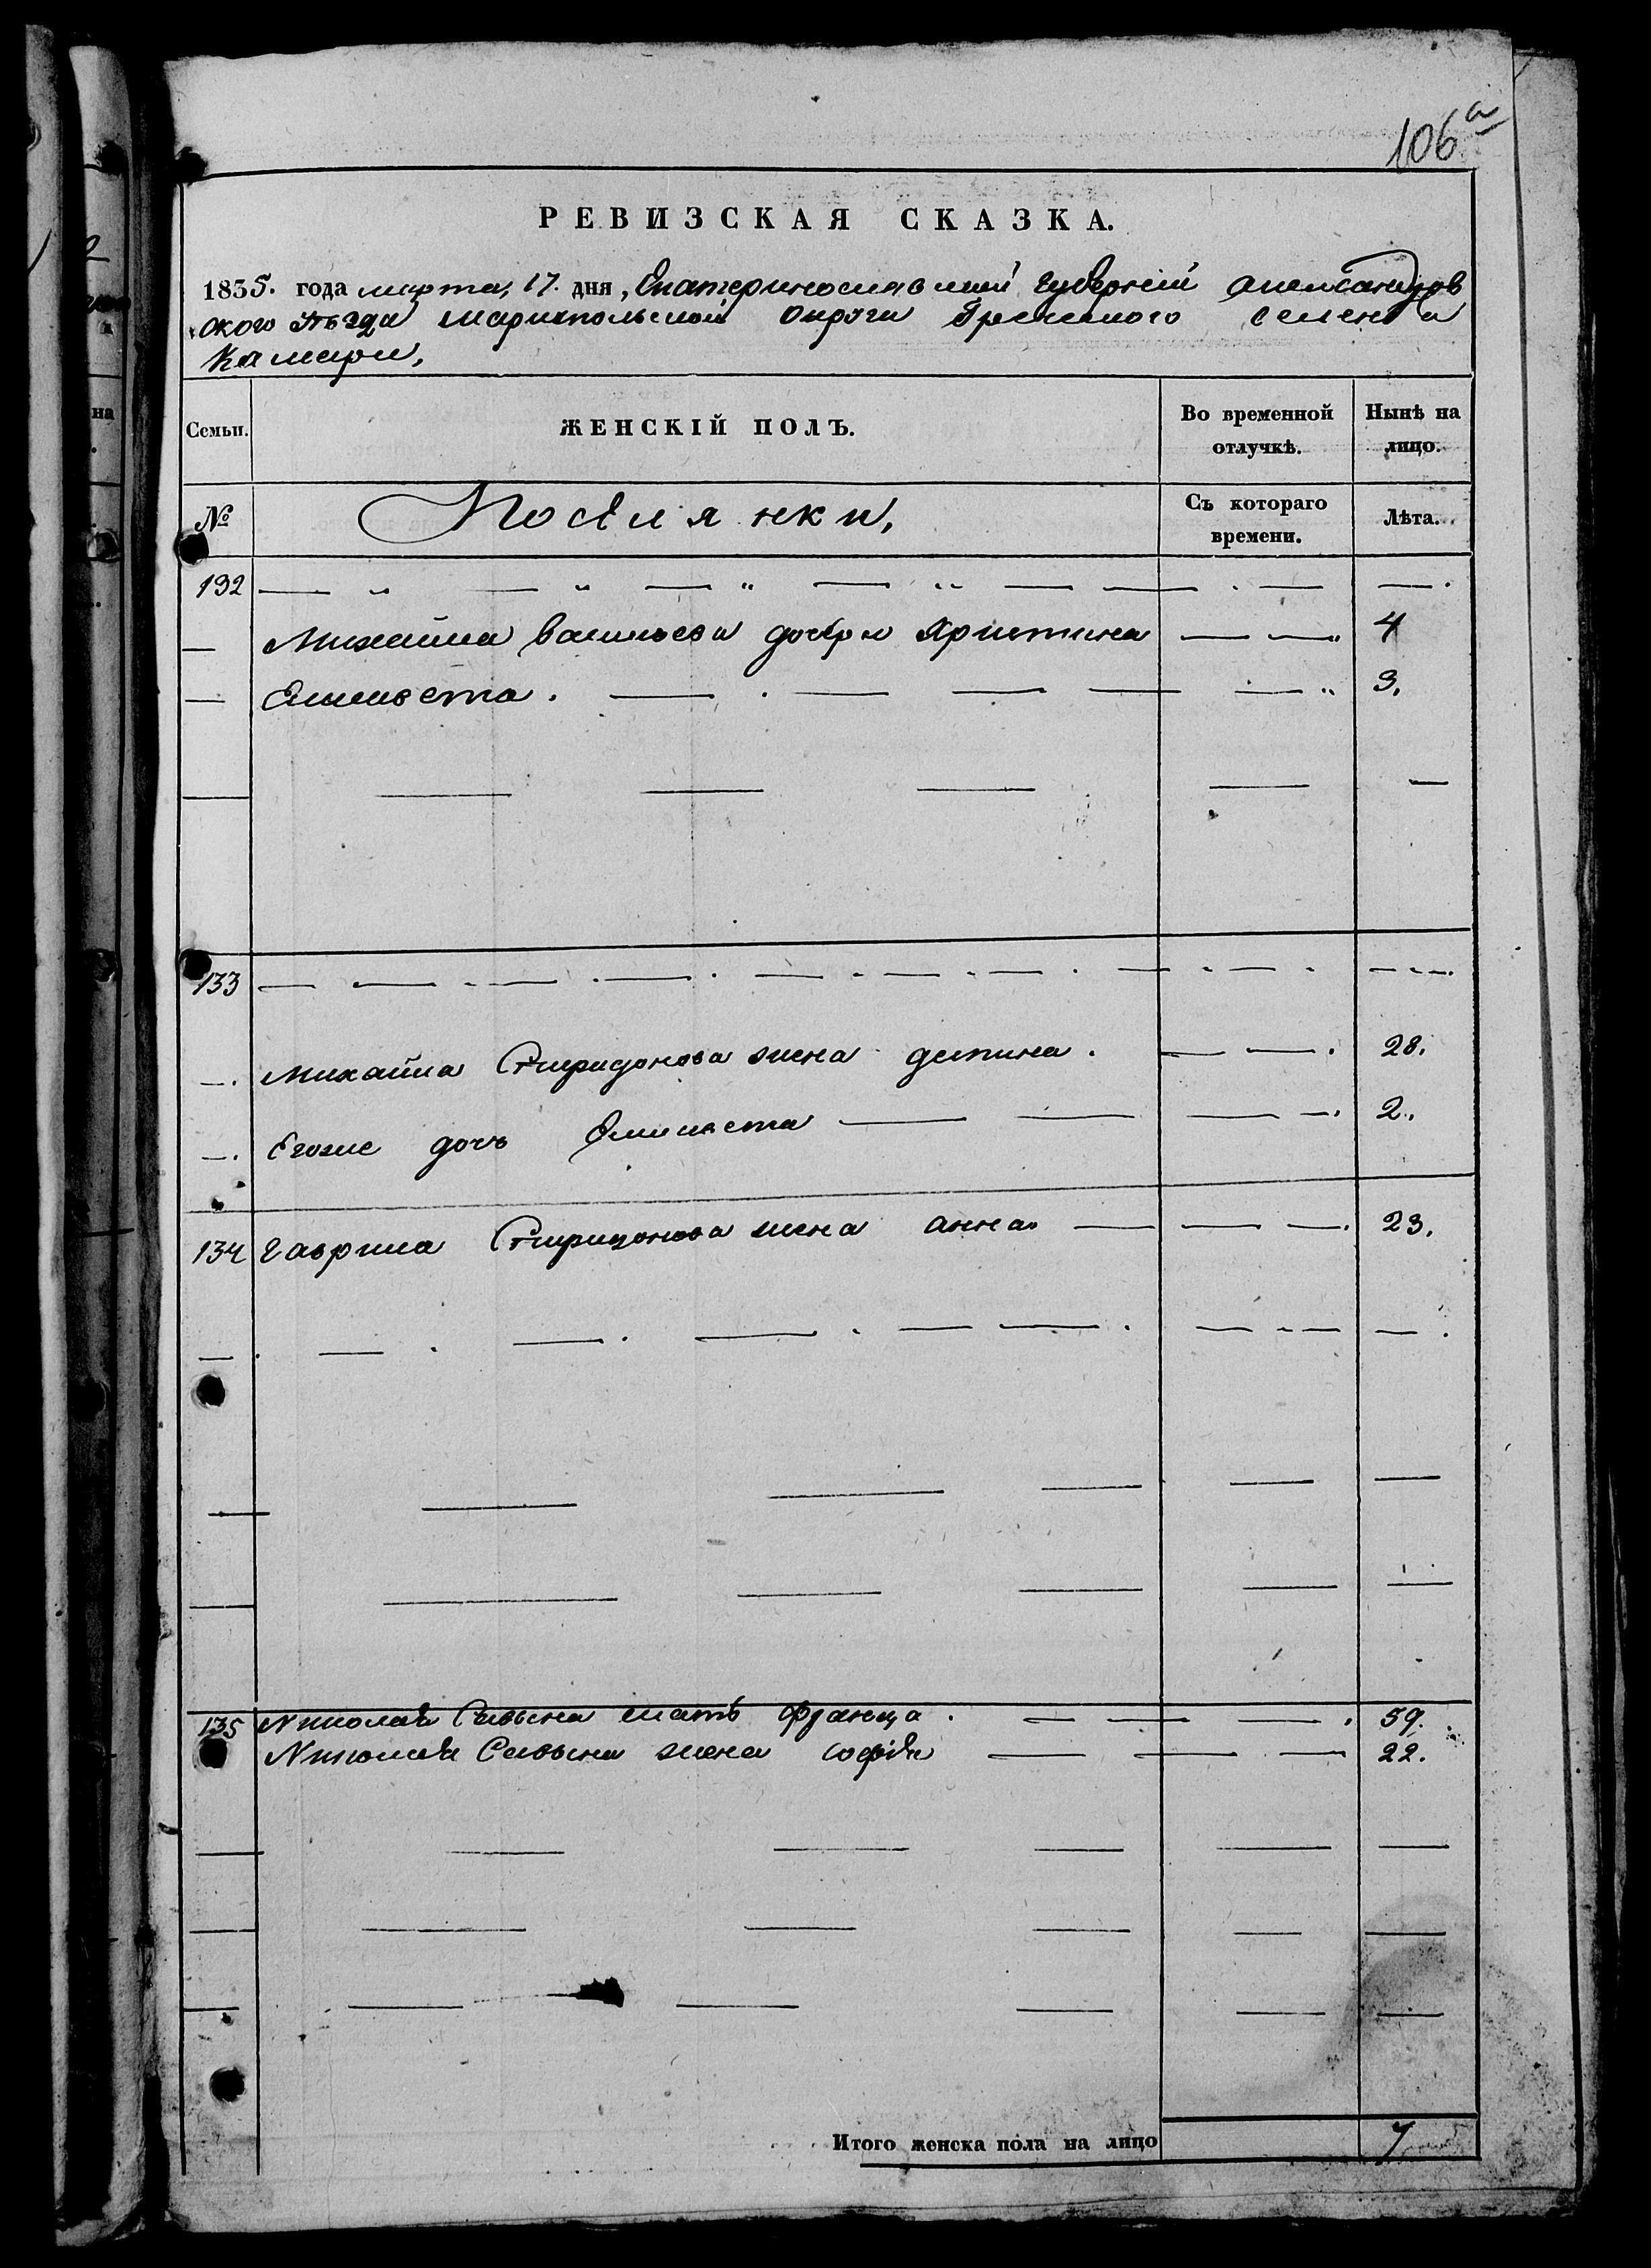 106а
РЕВИЗСКАЯ СКАЗКА.
1835. года марта, 17. дня, Екатеринославской губерніи Александров
ского уѣзда Мариупольской округи Греческого селения
Камари,
Семьи.
ЖЕНСКІЙ ПОЛЪ.
Во временной отлучкѣ.
Нынѣ на лицо.
№
Поселянки,
Съ котораго времени.
Лѣта.
132
Михаила Васильева дочери Христина 4
Елисавета. 3.
133
Михаила Спиридонова жена 28.
Егоже дочь Елисавета 2.
134 Гаврила Спиридонова жена анна 23.
135 Николая мать 59.
Николая жена софія 22.
Итого женска пола на лицо 7